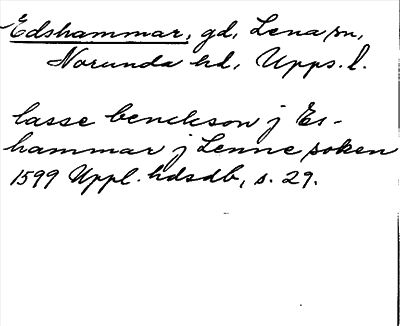 Edshammar, gd, Lena sn,
Norunda hd, Upps. l.
lasse benckson j Es-
hammar j Lenne soken
1599 Uppl. hdsdb, s. 29.